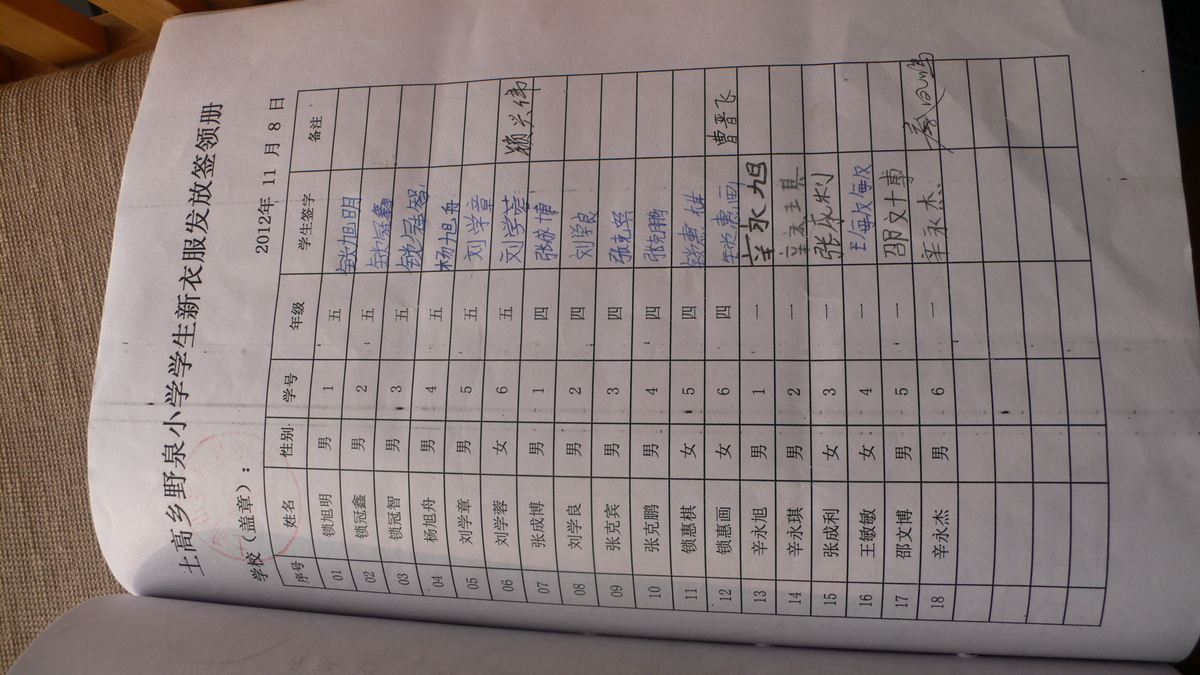 土高乡野泉小学学生新衣服发放签领册
学校（盖章）： 2012年 11 月 8 日
序号 姓名 性别 学号 年级 学生签字 备注
01 锁旭明 男 1 五 锁旭明
02 锁冠鑫 男 2 五 锁冠鑫
03 锁冠智 男 3 五 锁冠智
04 杨旭舟 男 4 五 杨旭舟
05 刘学章 男 5 五 刘学章
06 刘学蓉 女 6 五 刘学蓉
07 张成博 男 1 四 张成博
08 刘学良 男 2 四 刘学良
09 张克宾 男 3 四 张克宾
10 张克鹏 男 4 四 张克鹏
11 锁惠棋 女 5 四 锁惠棋
12 锁惠画 女 6 四 锁惠画 曹晋飞
13 辛永旭 男 1 一 辛永旭
14 辛永琪 男 2 一
15 张成利 女 3 一 张成利
16 王敏敏 女 4 一 王敏敏
17 邵文博 男 5 一 邵文博
18 辛永杰 男 6 一 辛永杰